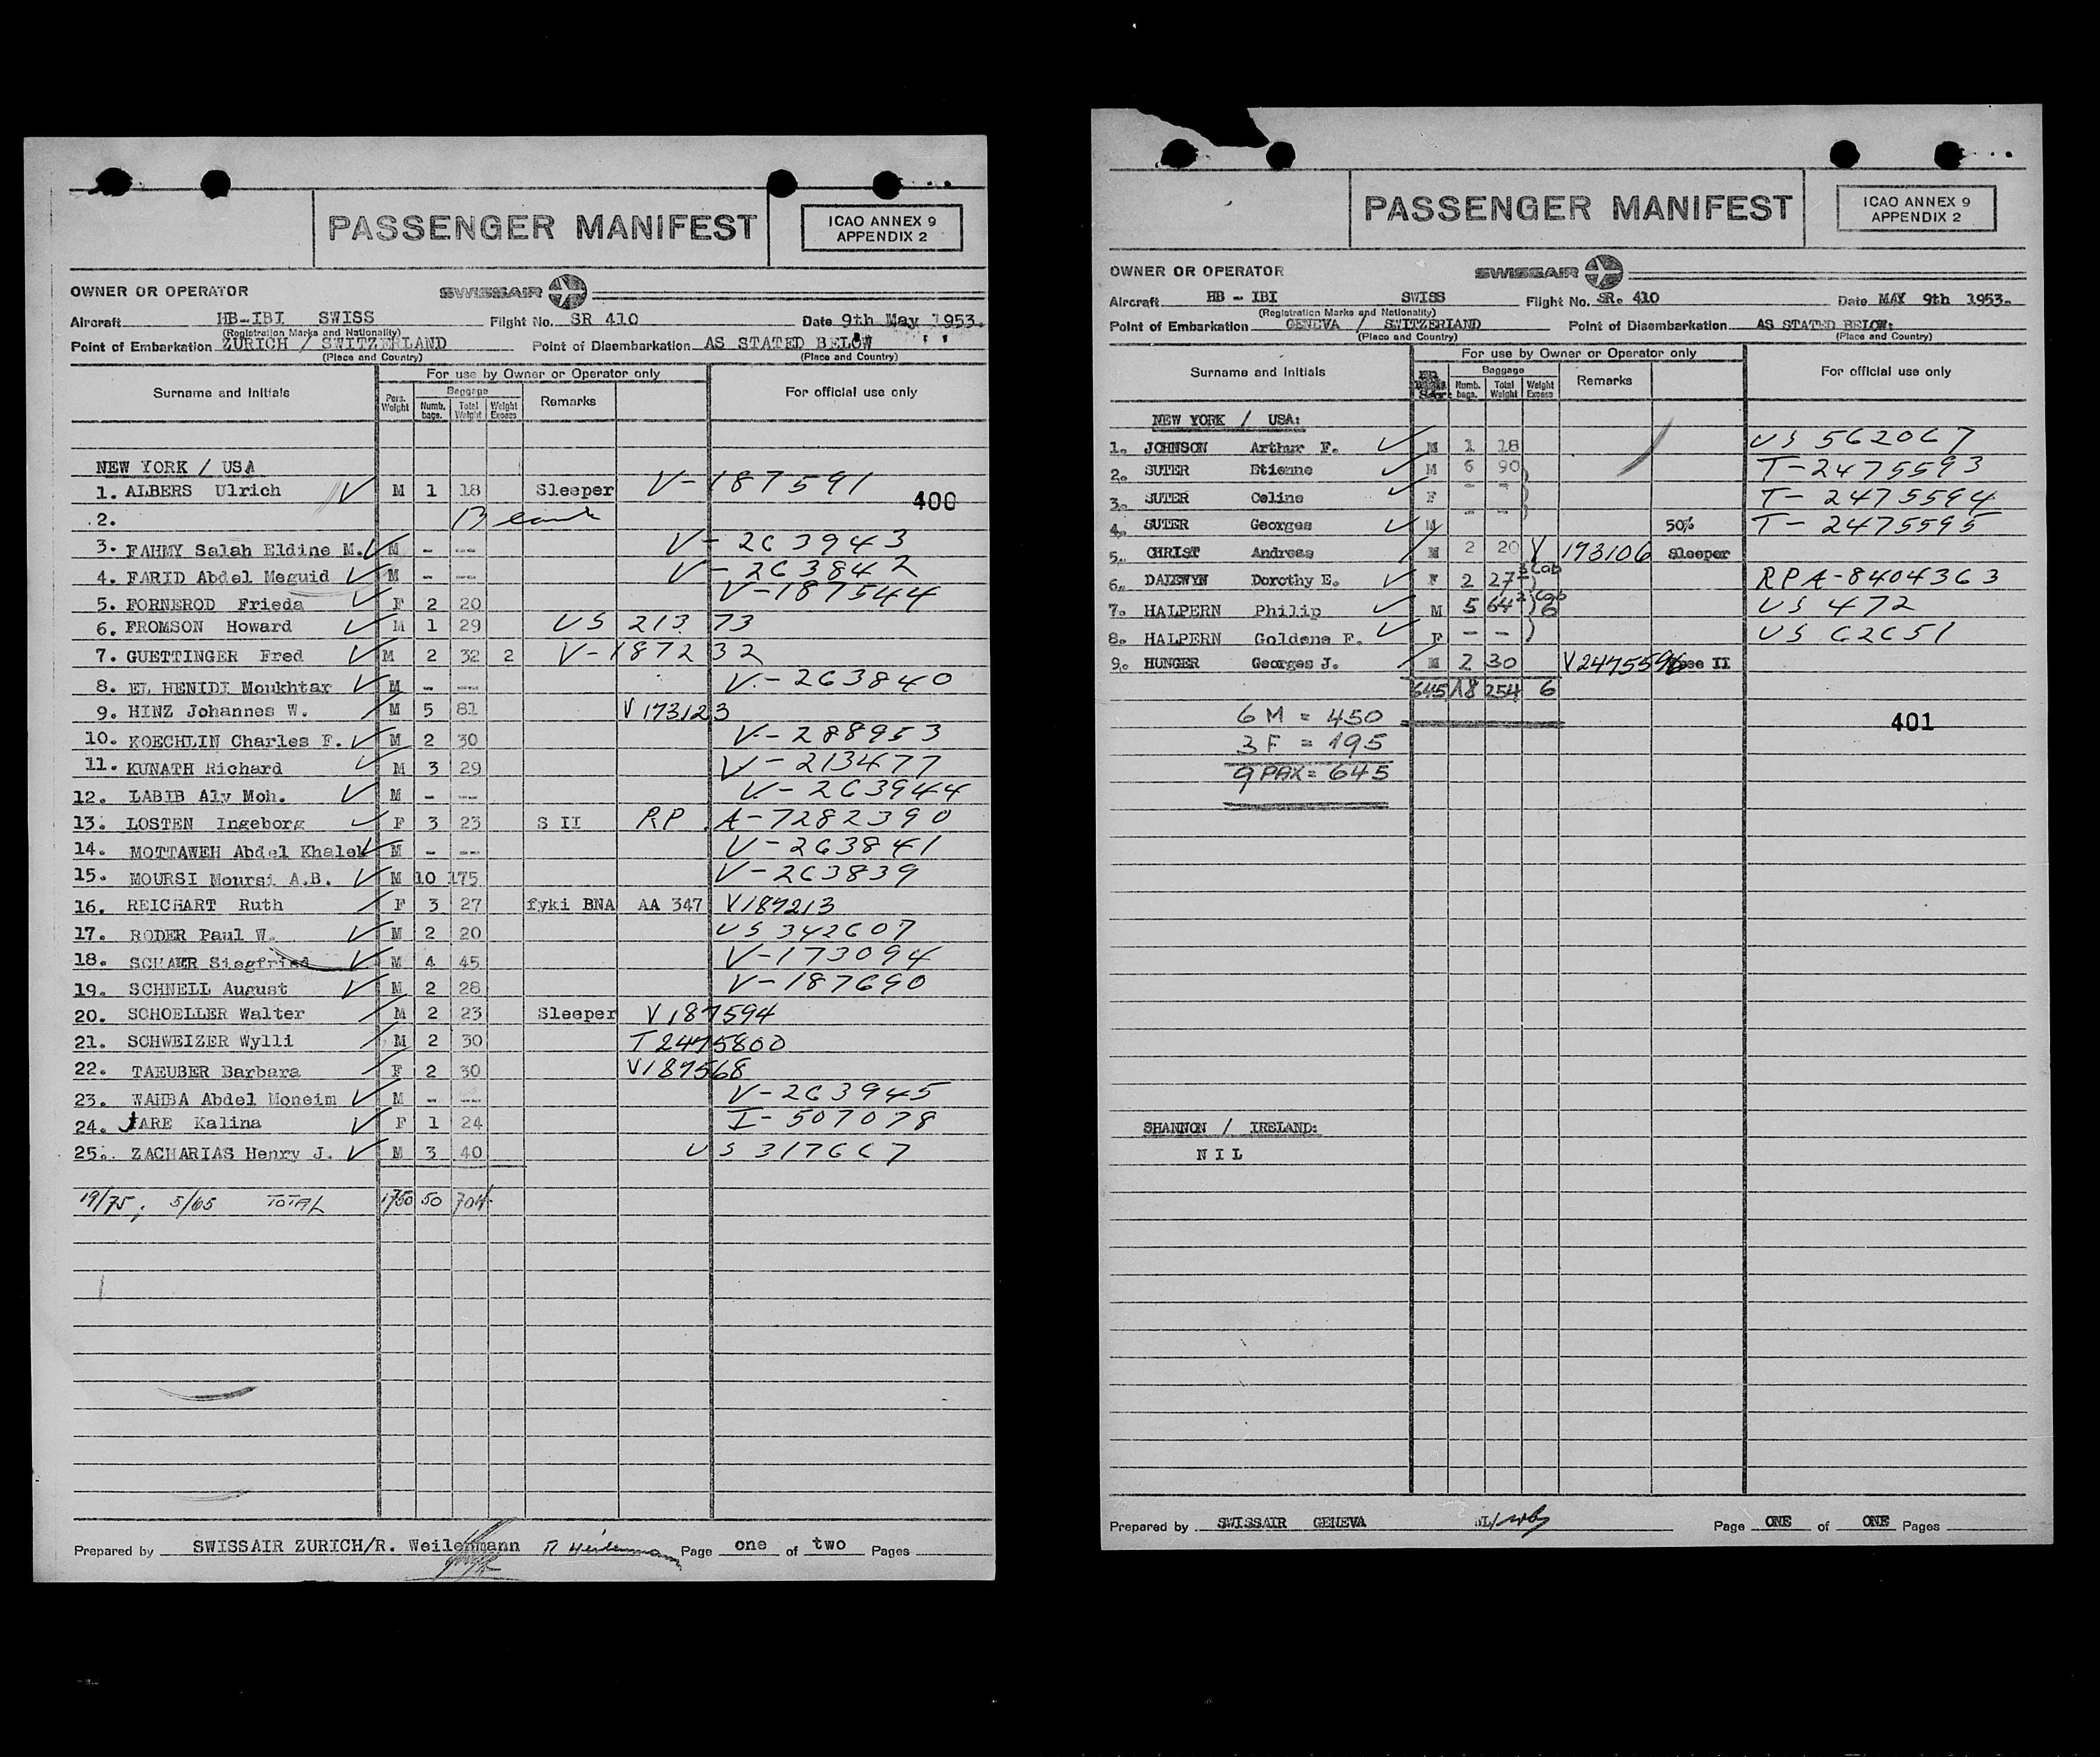 PASSENGER MANIFEST
ICAO ANNEX 9
APPENDIX 2
OWNER OR OPERATOR SWISSAIR
Aircraft HB-IBI SWISS Flight No. SR 410 Date 9th May 1953.
(Registration Marks and Nationality)
Point of Embarkation ZURICH / SWITZERLAND Point of Disembarkation AS STATED BELOW
(Place and Country) (Place and Country)
Surname and Initials For use by Owner or Operator only For official use only
Pers. Weight Baggage Numb. bags. Total Weight Weight Excess Remarks
NEW YORK / USA
1. ALBERS Ulrich M 1 18 Sleeper V-187591
400
2.
3. FAHMY Salah Eldine M. M - --- V-263943
4. FARID Abdel Meguid M - --- V-263842
5. FORNEROD Frieda F 2 20 V-187544
6. FROMSON Howard M 1 29 US 213 73
7. GUETTINGER Fred M 2 32 2 V-187232
8. EL HENIDI Moukhtar M - --- V-263840
9. HINZ Johannes W. M 5 81 V173123
10. KOECHLIN Charles F. M 2 30 V-288953
11. KUNATH Richard M 3 29 V-213477
12. LABIB Aly Moh. M - --- V-263944
13. LOSTEN Ingeborg F 3 23 S II RP A-7282390
14. MOTTAWEH Abdel Khalek M - --- V-263841
15. MOURSI Moursi A.B. M 10 175 V-263839
16. REICHART Ruth F 3 27 fyki BNA AA 347 V187213
17. RODER Paul W. M 2 20 US 342607
18. SCHAER Siegfried M 4 45 V-173094
19. SCHNELL August M 2 28 V-187690
20. SCHOELLER Walter M 2 23 Sleeper V187594
21. SCHWEIZER Wylli M 2 30 T2475800
22. TAEUBER Barbara F 2 30 V187568
23. WAHBA Abdel Moneim M - --- V-263945
24. JARE Kalina F 1 24 I-507078
25. ZACHARIAS Henry J. M 3 40 US 317667
19/75, 5/65 TOTAL 1750 50 704
Prepared by SWISSAIR ZURICH/R. Weilenmann Page one of two Pages
PASSENGER MANIFEST
ICAO ANNEX 9
APPENDIX 2
OWNER OR OPERATOR SWISSAIR
Aircraft HB - IBI SWISS Flight No. SR. 410 Date MAY 9th 1953.
(Registration Marks and Nationality)
Point of Embarkation GENEVA / SWITZERLAND Point of Disembarkation AS STATED BELOW:
(Place and Country) (Place and Country)
Surname and Initials For use by Owner or Operator only For official use only
Baggage Numb. bags. Total Weight Weight Excess Remarks
NEW YORK / USA:
1. JOHNSON Arthur F. M 1 18 US 562067
2. SUTER Etienne M 6 90 T-2475593
3. SUTER Celine F - - T-2475594
4. SUTER Georges M - - 50% T-2475595
5. CHRIST Andreas M 2 20 V 173106 Sleeper
6. DALEWYN Dorothy E. F 2 27 RPA-8404363
7. HALPERN Philip M 5 64 6 US 472
8. HALPERN Goldene F. F - - US 62651
9. HUNGER Georges J. M 2 30 V2475596 see II
645 18 254 6
6 M = 450
3 F = 195
9 PAX = 645
401
SHANNON / IRELAND:
N I L
Prepared by SWISSAIR GENEVA Page ONE of ONE Pages